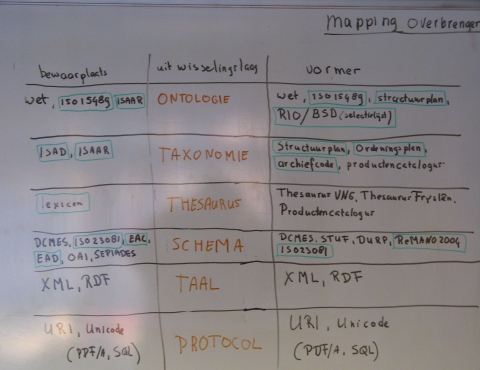 Mapping Overbrenger
bewaarplaats uitwisselingslaag vormer
wet, ISO15489 ISAAR ONTOLOGIE wet, ISO15489, structuurplan,
RIO/BSD (selectielijst)
ISAD, ISAAR TAXONOMIE Structuurplan, Ordeningsplan,
archiefcode, productencatalogus
lexicon THESAURUS Thesaurus VNG, Thesaurus Fryslân,
Productencatalogus
DCMES, ISO23081, EAC, SCHEMA DCMES, STUF, DURP, ReMANO2004
EAD, OAI, SEPIADES ISO23081
XML, RDF TAAL XML, RDF
URI, Unicode PROTOCOL URI, Unicode
(PDF/A, SQL) (PDF/A, SQL)